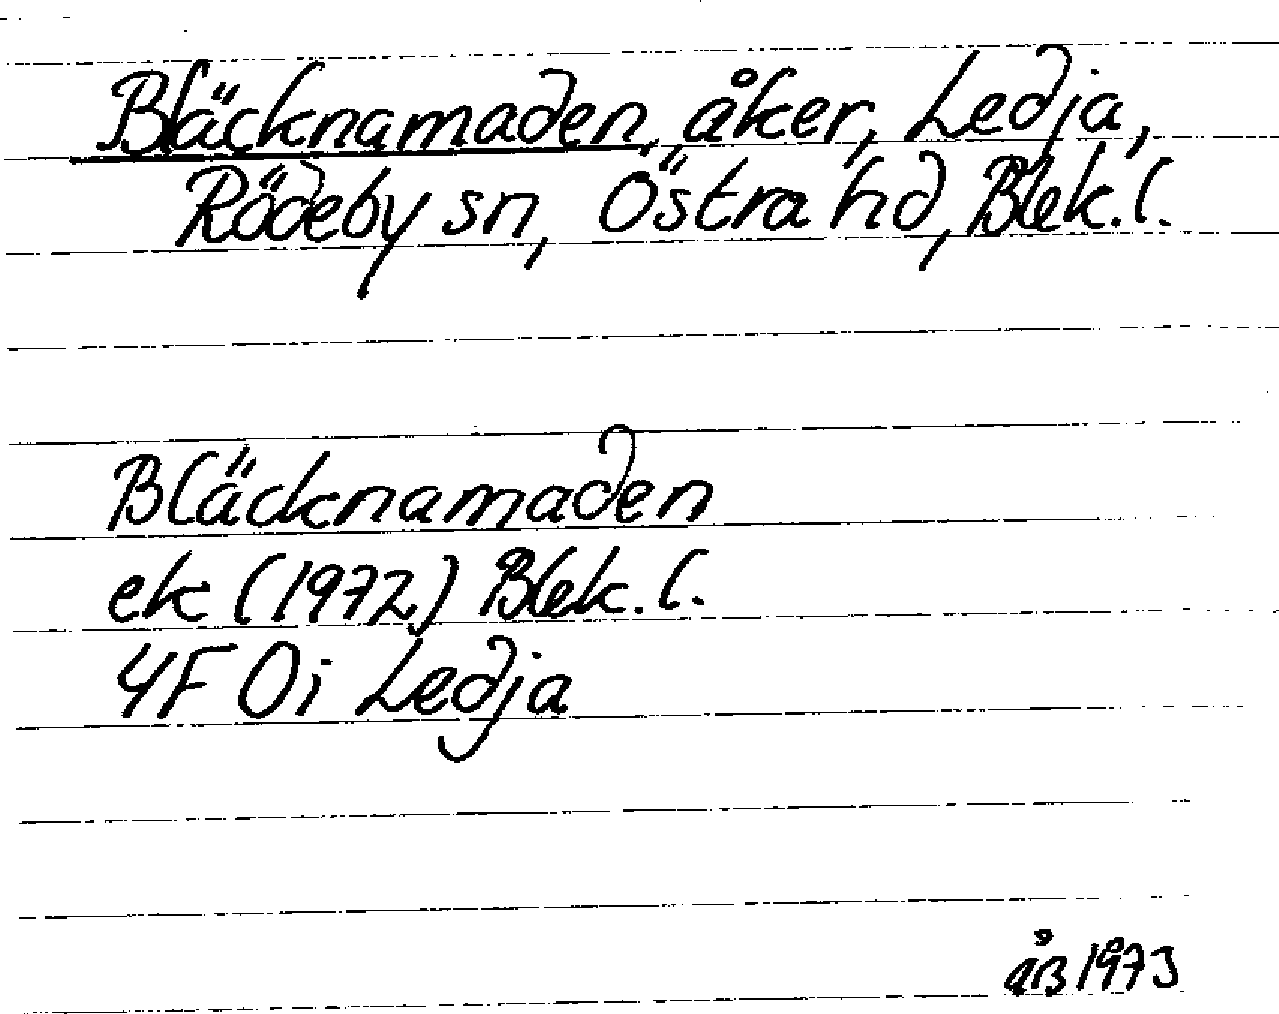 Bläcknamaden, åker, Ledja,
Rödeby sn, Östra hd, Blek. l.
Bläcknamaden
ek (1972) Blek. l.
4F 0i Ledja
åB 1973